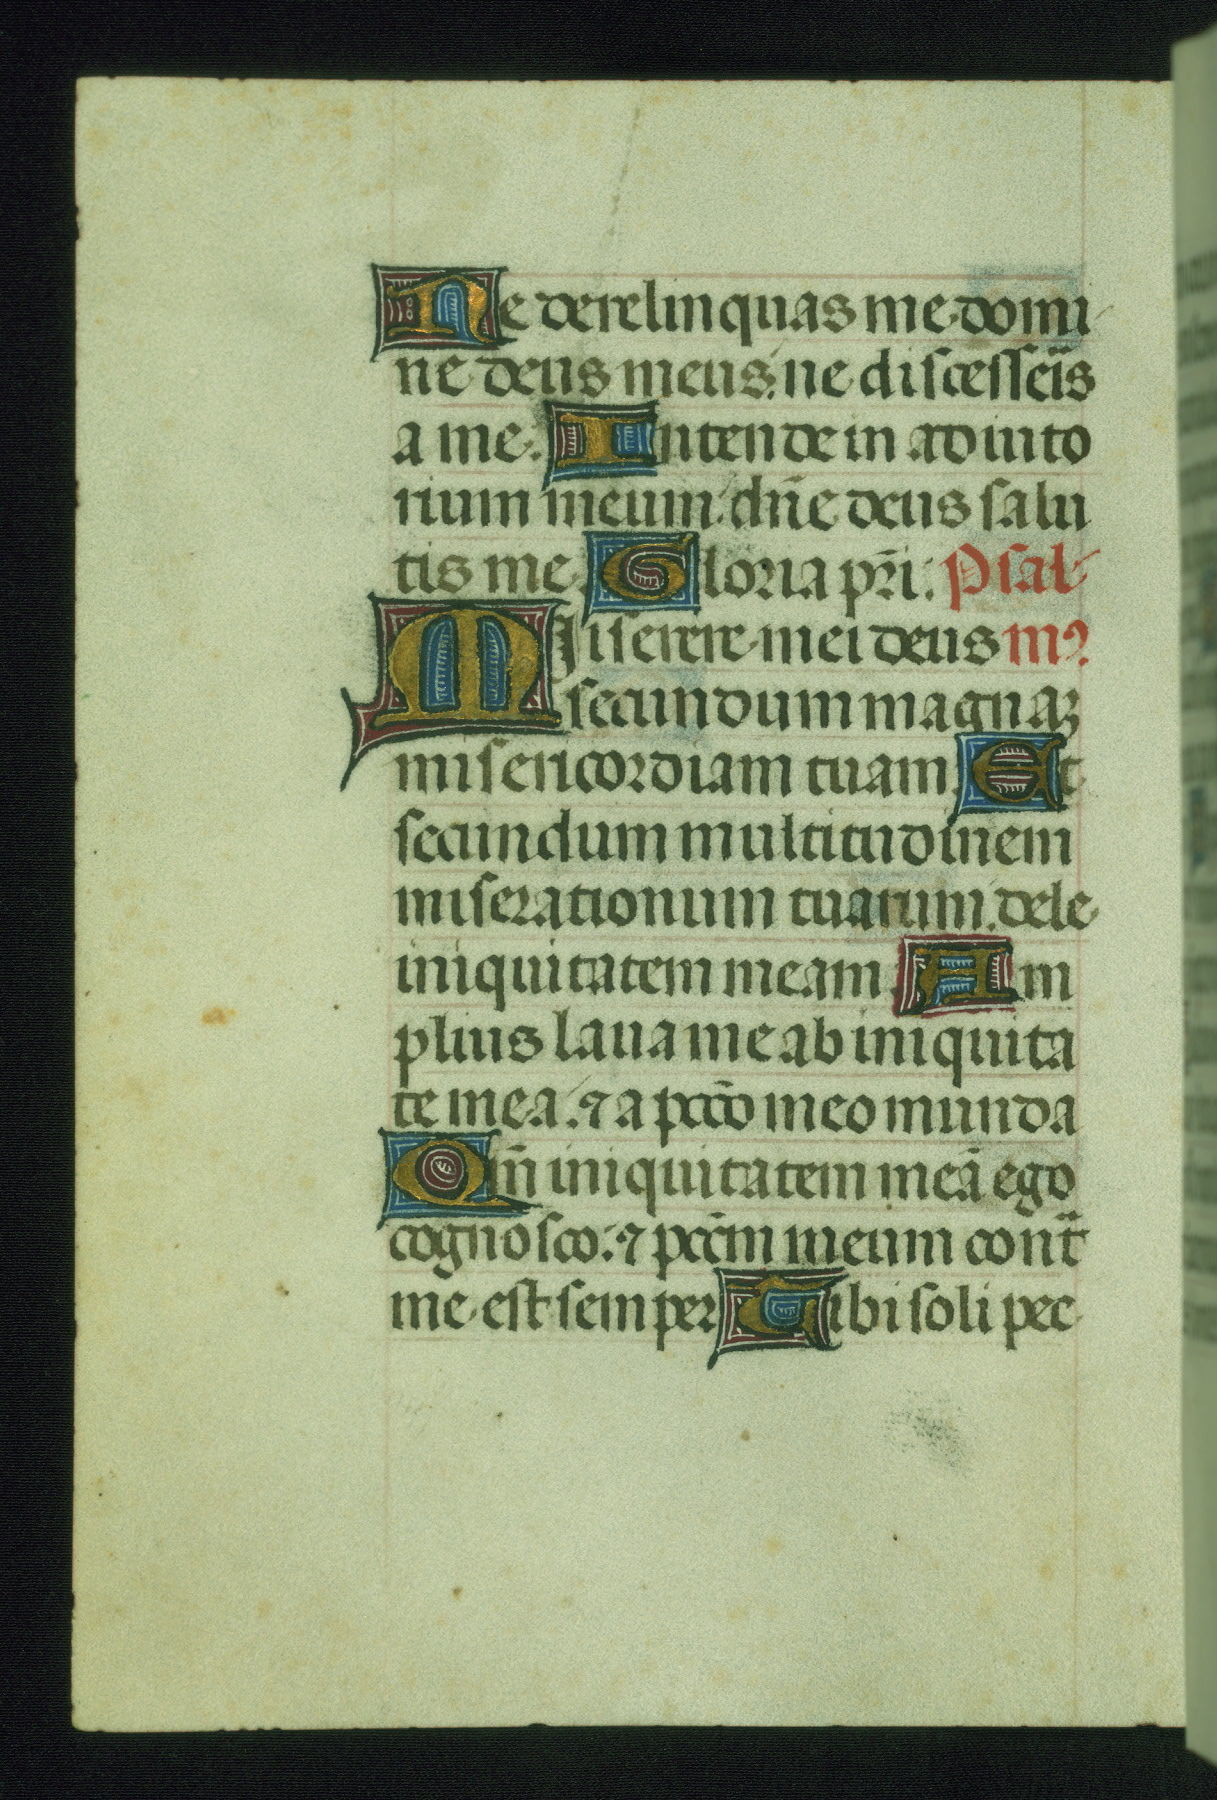 Ne derelinquas me domi
ne deus meus: ne discesseris
a me. Intende in adiuto
rium meum: dn̄e deus salu
tis me. Gloria pr̄i. Psal
Miserere mei deus mꝰ
secundum magnaꝫ
misericordiam tuam. Et
secundum multitudinem
miserationum tuarum: dele
iniquitatem meam. Am
plius laua me ab iniquita
te mea: ⁊ a pccō meo munda
Qm̄ iniquitatem meā ego
cognosco: ⁊ pccm̄ meum contᷓ
me est semper. Tibi soli pec